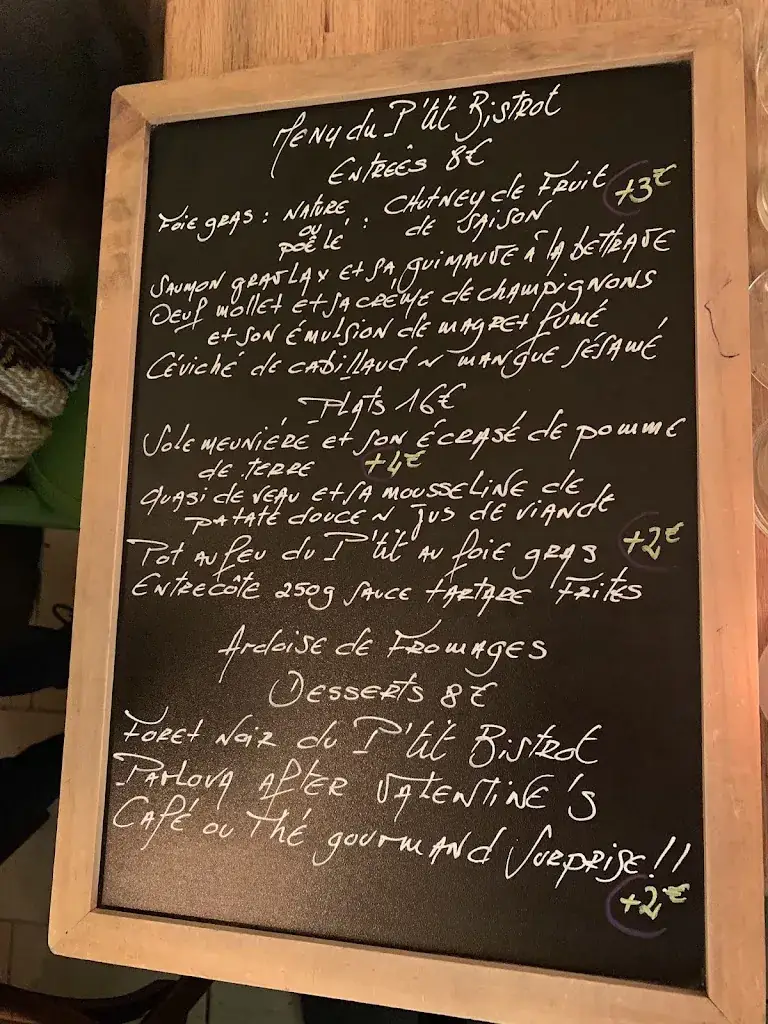 Menu du P'tit Bistrot
Entrées 8€
Foie gras : Nature ou poêlé : Chutney de Fruit de saison +3€
Saumon gravlax et sa guimauve à la betterave
Oeuf mollet et sa crème de champignons
et son émulsion de magret fumé
Céviché de cabillaud ~ mangue sésame
Plats 16€
Sole meunière et son écrasé de pomme
de terre +4€
Quasi de veau et sa mousseline de
patate douce ~ jus de viande
Pot au feu du P'tit au foie gras +2€
Entrecôte 250g sauce tartare Frites
Ardoise de Fromages
Desserts 8€
Foret noir du P'tit Bistrot
Pavlova after Valentine's
Café ou Thé gourmand Surprise!!
+2€